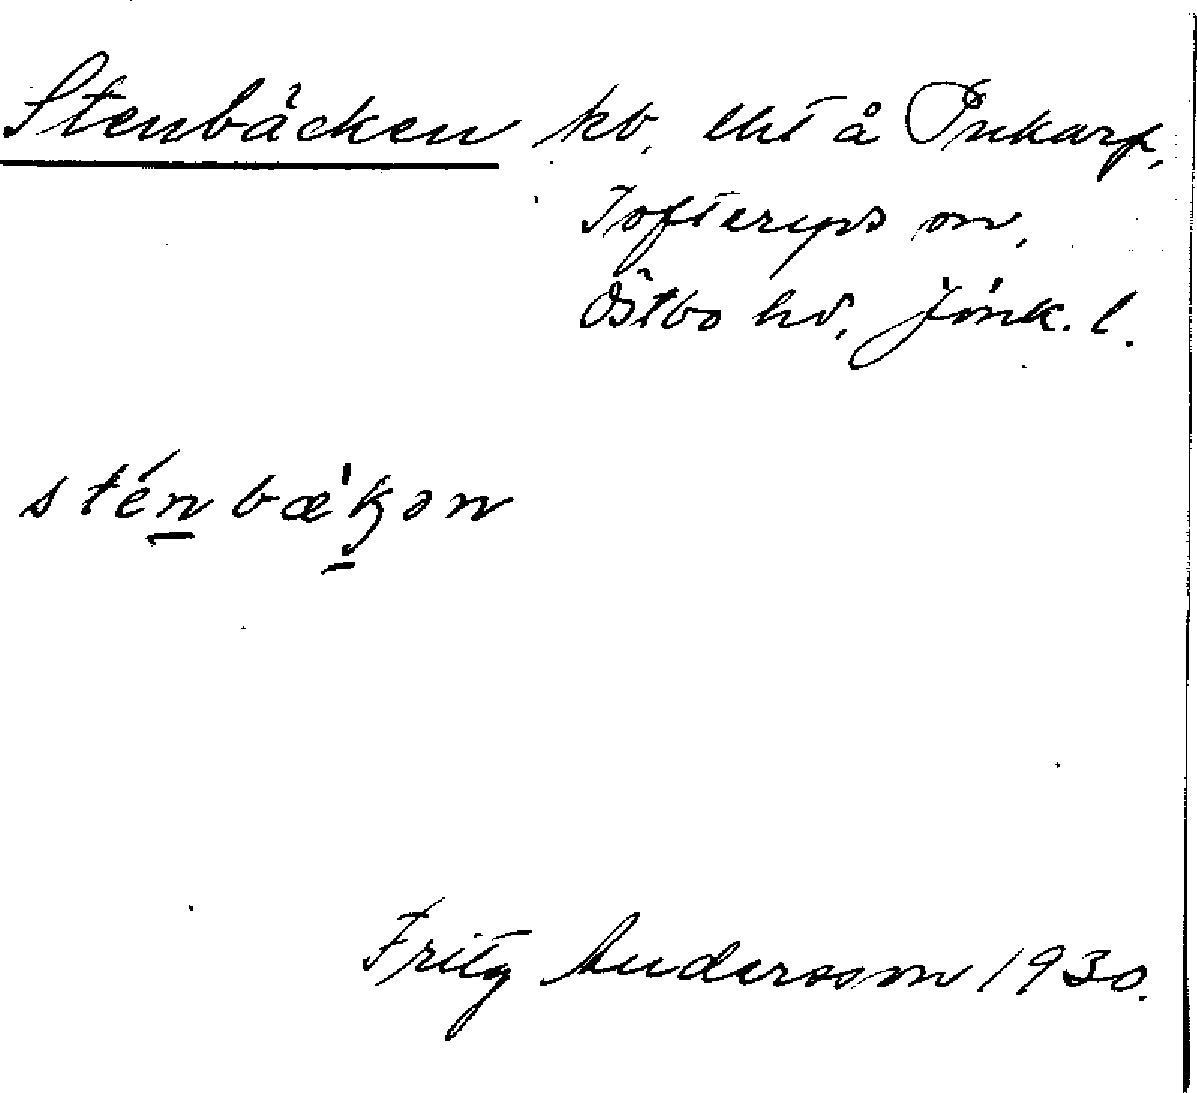 Stenbäcken hd. lht å Inkarp,
Tofteryds sn,
Östbo hd, Jönk. l.
sténbæ'kən
Fritz Andersson 1930.